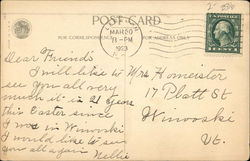 POST CARD
FOR CORRESPONDENCE
FOR ADDRESS ONLY
MAR 30
11-PM
1923
Dear Friends
I would like to
see you all very
much it is 21 years
this Easter since
I was in Winooski
I would like to see
you all again Nellie
Mrs Homeister
17 Platt St
Winooski
Vt.